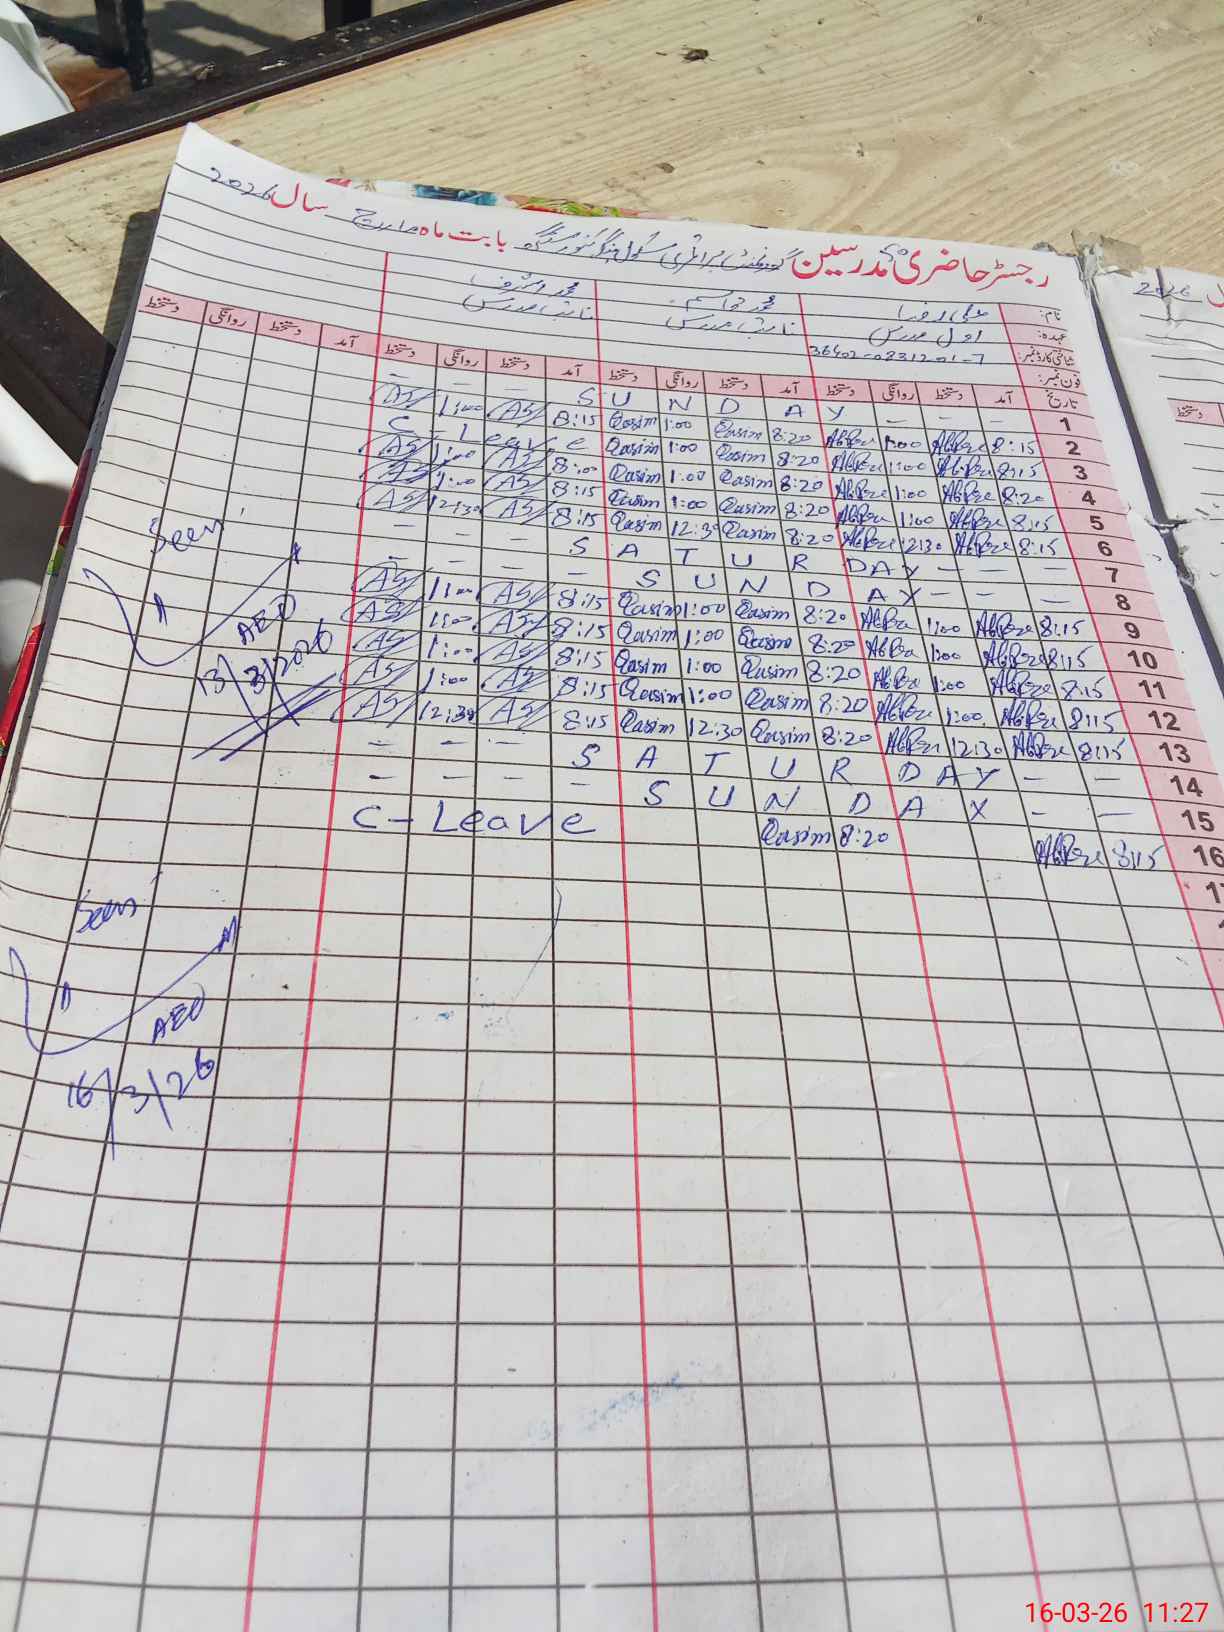 رجسٹر حاضری مدرسین گورنمنٹ پرائمری سکول بابت ماہ مارچ سال 2026
نام: علی رضا محمد قاسم محمد
عہدہ: اول مدرس نائب مدرس نائب مدرس
شناختی کارڈ نمبر: 36402-0831201-7
فون نمبر:
تاریخ آمد دستخط روانگی دستخط آمد دستخط روانگی دستخط آمد دستخط روانگی دستخط آمد دستخط روانگی دستخط
— — — S U N D A Y — — 1
AS 1:00 AS 8:15 Qasim 1:00 Qasim 8:20 1:00 8:15 2
C - Leave Qasim 1:00 Qasim 8:20 1:00 8:15 3
AS 1:00 AS 8:00 Qasim 1:00 Qasim 8:20 1:00 8:20 4
AS 1:00 AS 8:15 Qasim 1:00 Qasim 8:20 1:00 8:15 5
AS 12:30 AS 8:15 Qasim 12:30 Qasim 8:20 12:30 8:15 6
— — — S A T U R D A Y — — — 7
— — — — S U N D A Y — — — 8
AS 1:00 AS 8:15 Qasim 1:00 Qasim 8:20 1:00 8:15 9
AS 1:00 AS 8:15 Qasim 1:00 Qasim 8:20 1:00 8:15 10
AS 1:00 AS 8:15 Qasim 1:00 Qasim 8:20 1:00 8:15 11
AS 1:00 AS 8:15 Qasim 1:00 Qasim 8:20 1:00 8:15 12
AS 12:30 AS 8:15 Qasim 12:30 Qasim 8:20 12:30 8:15 13
— — — S A T U R D A Y — — 14
— — — — S U N D A Y — — 15
C - Leave Qasim 8:20 8:15 16
Seen
AEO
13/3/2026
Seen
AEO
16/3/26
2026
دستخط
16-03-26 11:27